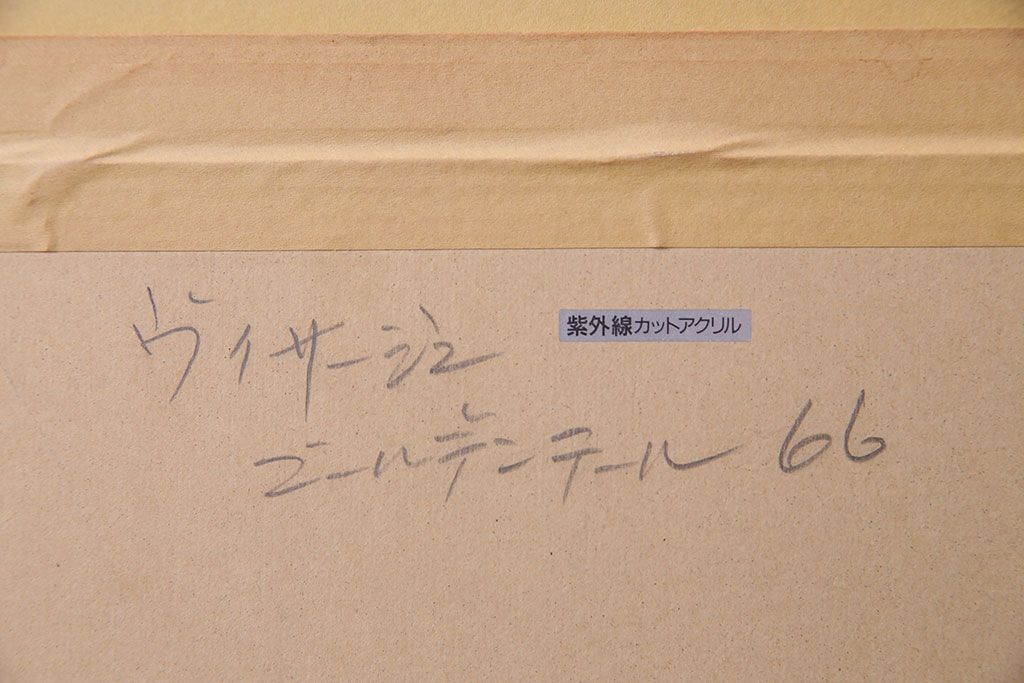 ヴィサージュ
紫外線カットアクリル
ゴールデンテール 66